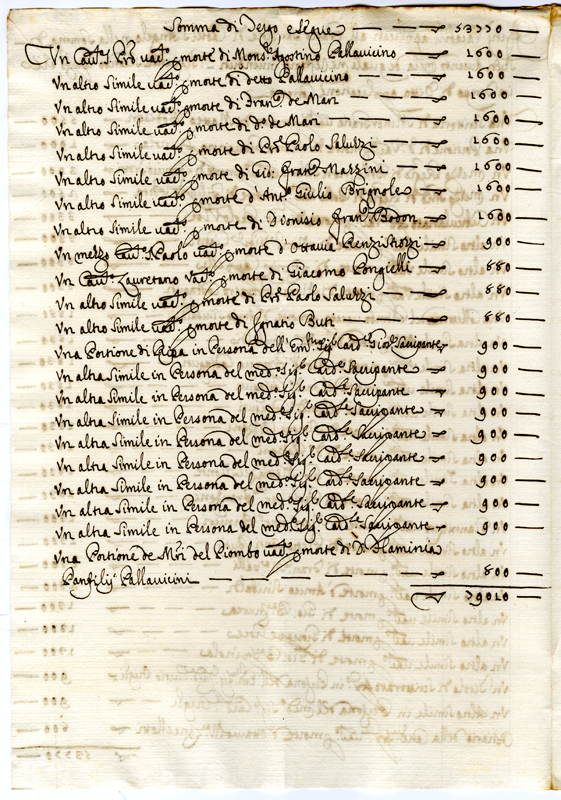 Somma di Tergo e segue — 53770 —
Un Cau.to S. P.ro vac.to p morte di Mons.r Agostino Pallavicino — 1600 —
Un altro Simile vac.to p morte di detto Pallavicino — 1600 —
Un altro Simile vac.to p morte di Fran.co de Mari — 1600 —
Un altro Simile vac.to p morte di d.o de Mari — 1600 —
Un altro Simile vac.to p morte di Paolo Saluzzi — 1600 —
Un altro Simile vac.to p morte di Gio: Fran.co Marzini — 1600 —
Un altro Simile vac.to p morte d'Ant.o Giulio Brignole — 1600 —
Un altro Simile vac.to p morte di Dionisio Fran.co Bodon — 1600 —
Un mezzo Cau.to S. Paolo vac.to p morte d'Ottavia Renzi Storzi — 900 —
Un Cau.to Lauretano vac.to p morte di Giacomo Pongielli — 880 —
Un altro Simile vac.to p morte di Paolo Saluzzi — 880 —
Un altro Simile vac.to p morte di Ignatio Buti — 880 —
Una Portione di Ripa in Persona dell'Em.mo Sig.r Card.le Gios.e Sacripante — 900 —
Un altra Simile in Persona del med.o Sig.r Card.le Sacripante — 900 —
Un altra Simile in Persona del med.o Sig.r Card.le Sacripante — 900 —
Un altra Simile in Persona del med.o Sig.r Card.le Sacripante — 900 —
Un altra Simile in Persona del med.o Sig.r Card.le Sacripante — 900 —
Un altra Simile in Persona del med.o Sig.r Card.le Sacripante — 900 —
Un altra Simile in Persona del med.o Sig.r Card.le Sacripante — 900 —
Un altra Simile in Persona del med.o Sig.r Card.le Sacripante — 900 —
Un altra Simile in Persona del med.o Sig.r Card.le Sacripante — 900 —
Una Portione de Mri del Piombo vac.ta p morte di D. Flaminia
Panfilij Pallavicini — 800 —
79010 —